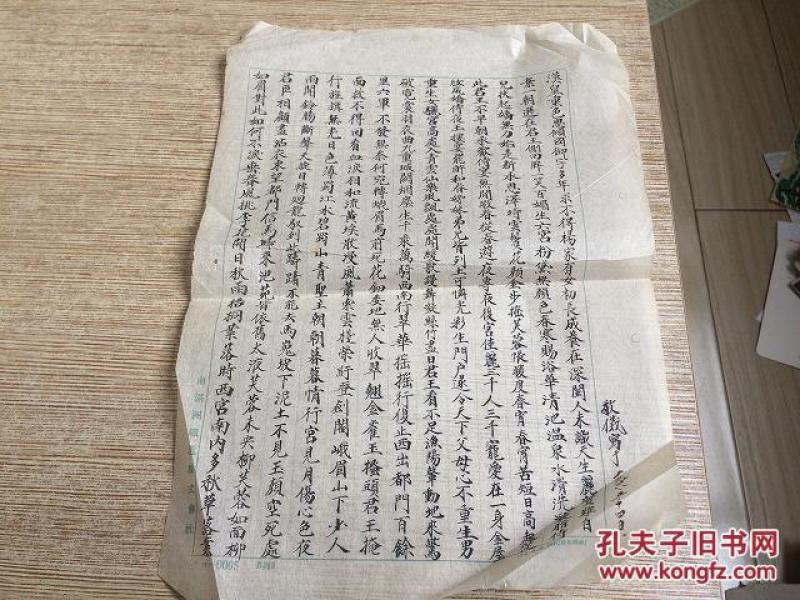 敬儀寫了
漢皇重色思傾國御宇多年求不得楊家有女初長成養在深閨人未識天生麗質難自
棄一朝選在君王側回眸一笑百媚生六宮粉黛無顏色春寒賜浴華清池温泉水滑洗凝脂侍
兒扶起嬌無力始是新承恩澤時雲鬢花顏金步搖芙蓉帳暖度春宵春宵苦短日高起從
此君王不早朝承歡侍宴無閒暇春從春遊夜專夜後宮佳麗三千人三千寵愛在一身金屋
妝成嬌侍夜玉樓宴罷醉和春姊妹弟兄皆列土可憐光彩生門户遂令天下父母心不重生男
重生女驪宮高處入青雲仙樂風飄處處聞緩歌慢舞凝絲竹盡日君王看不足漁陽鼙動地來驚
破霓裳羽衣曲九重城闕烟塵生千乘萬騎西南行翠華搖搖行復止西出都門百餘
里六軍不發無奈何宛轉蛾眉馬前死花鈿委地無人收翠翹金雀玉搔頭君王掩
面救不得回看血淚相和流黃埃散漫風蕭索雲棧縈紆登劍閣峨眉山下少人
行旌旗無光日色薄蜀江水碧蜀山青聖主朝朝暮暮情行宮見月傷心色夜
雨聞鈴腸斷聲天旋日轉迴龍馭到此躊躇不能去馬嵬坡下泥土不見玉顏空死處
君臣相顧盡沾衣東望都門信馬歸來池苑皆依舊太液芙蓉未央柳芙蓉如面柳
如眉對此如何不淚垂春風桃李花開日秋雨梧桐葉落時西宮南內多秋草落葉
0005
孔夫子旧书网
www.kongfz.com